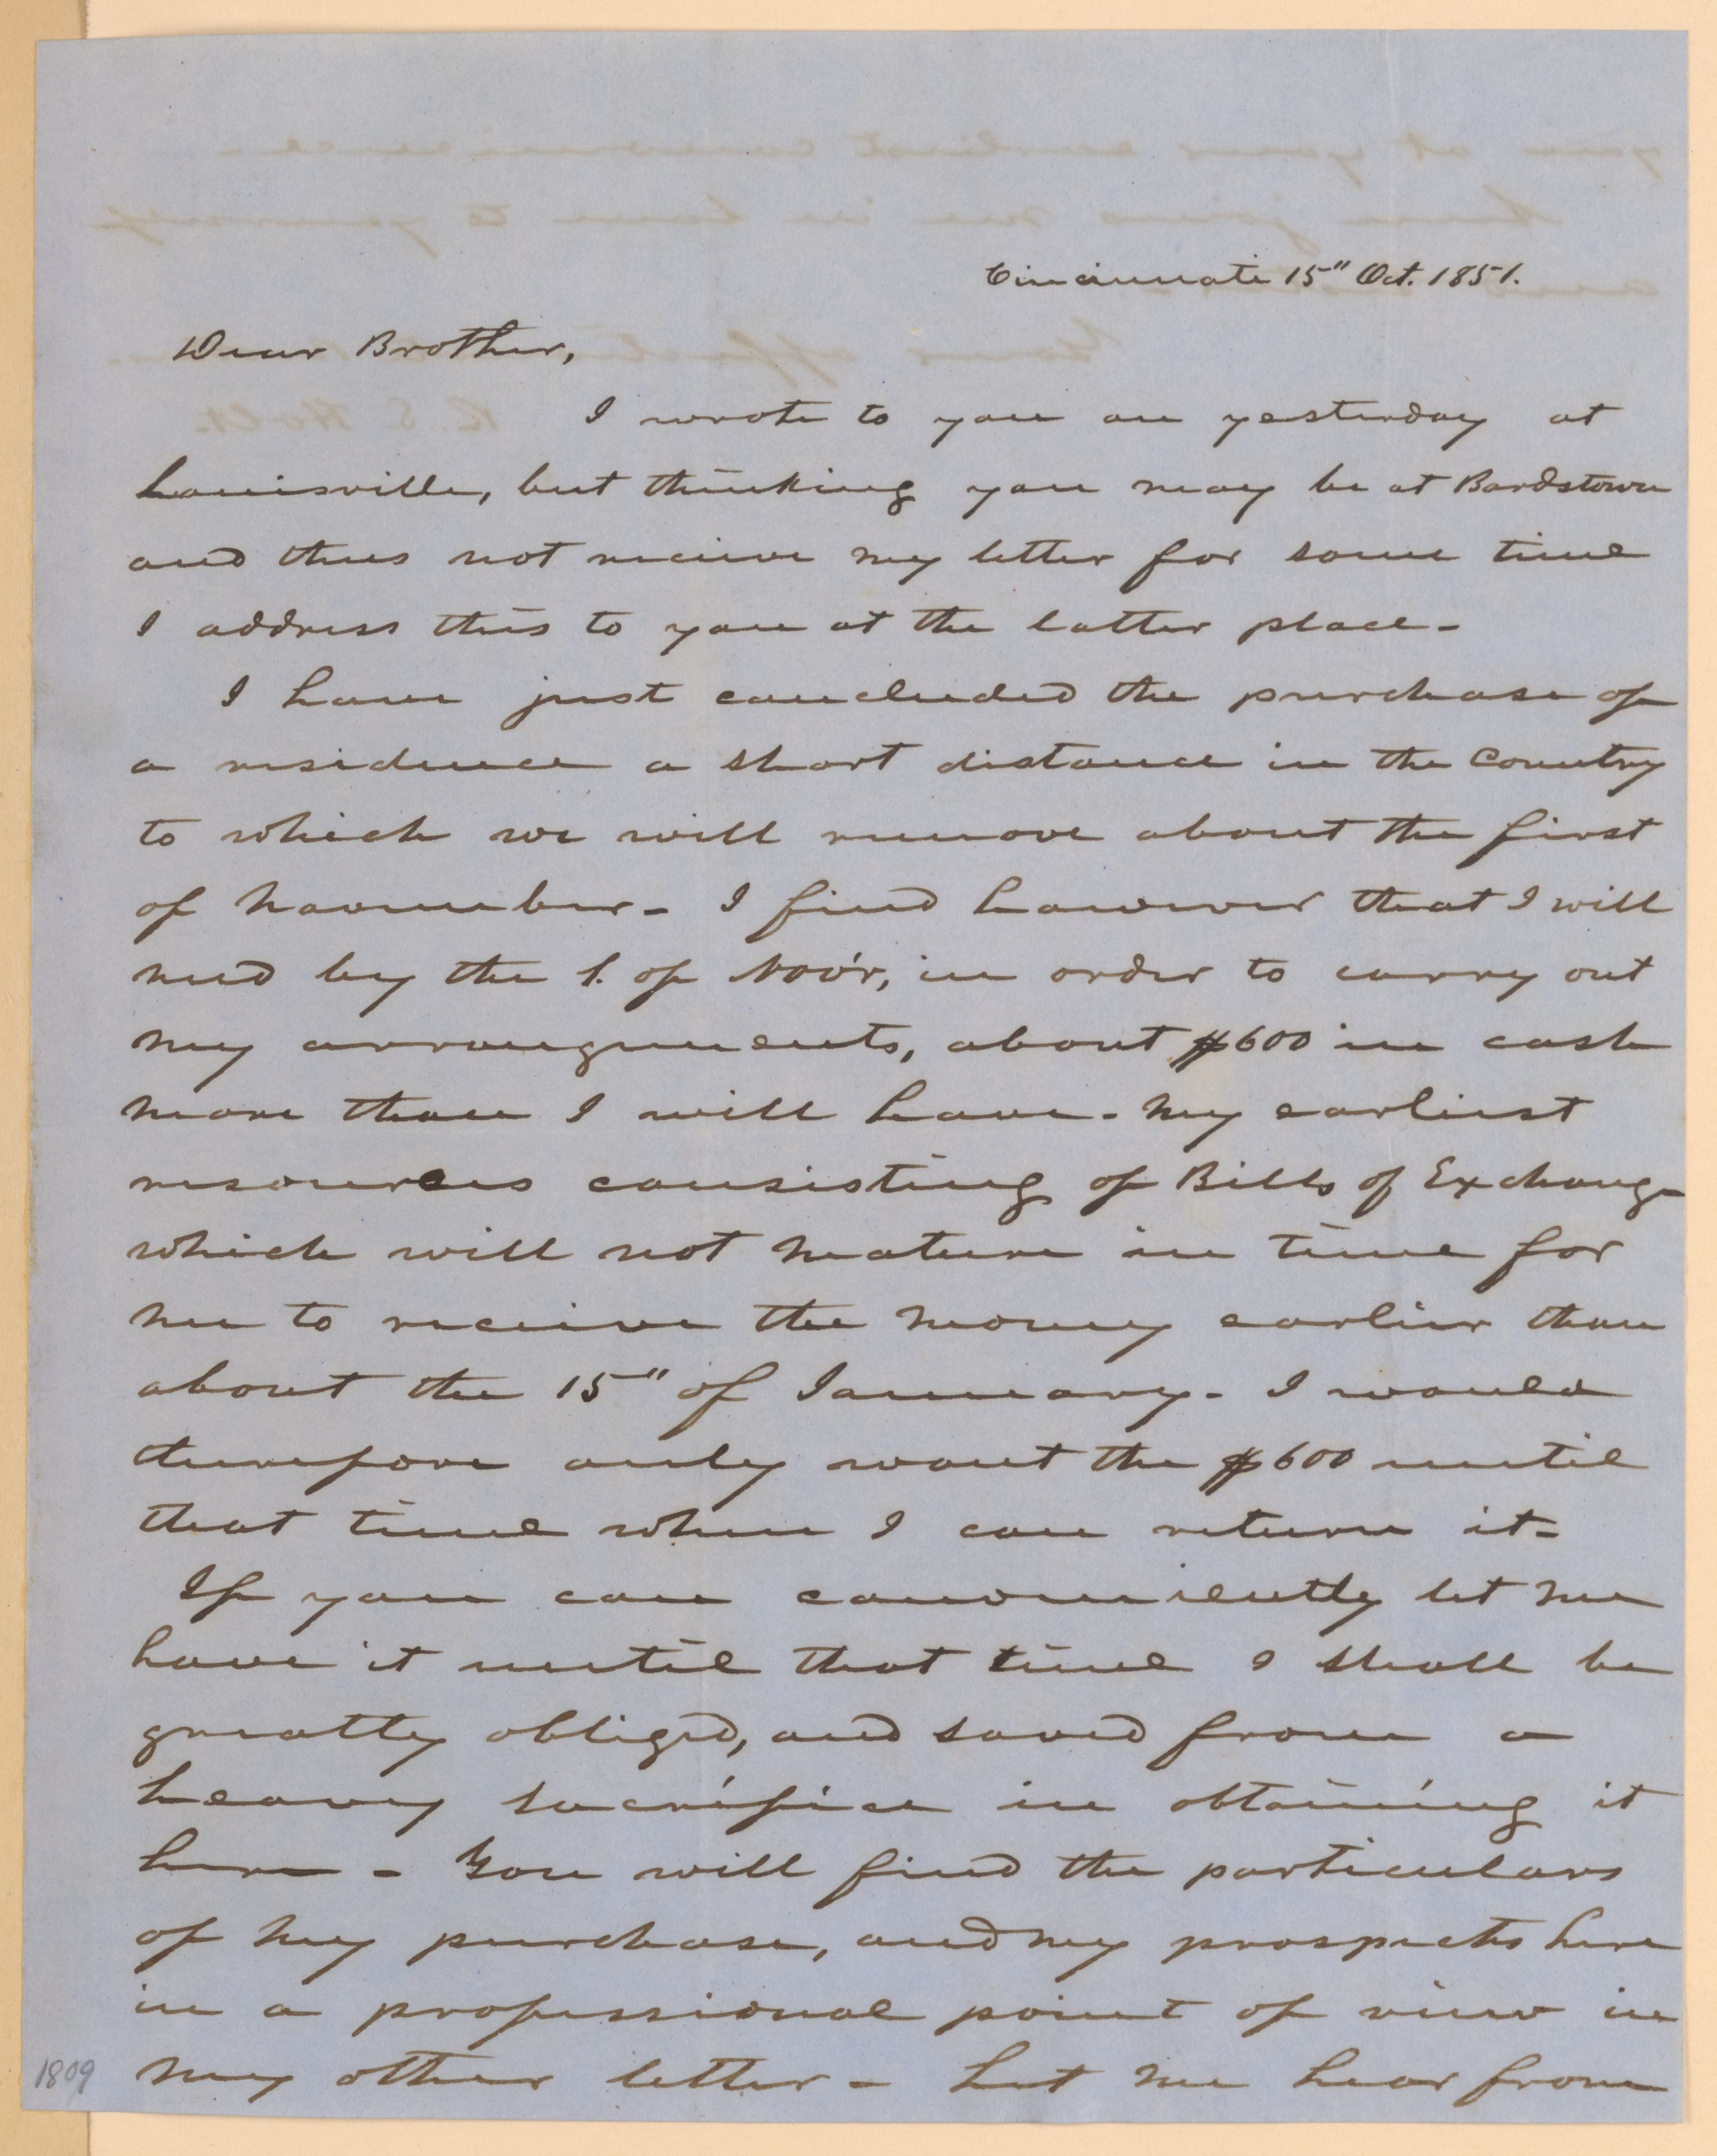 Cincinnati 15" Oct. 1851.
Dear Brother,
I wrote to you on yesterday at
Louisville, but thinking you may be at Bardstown
and thus not receive my letter for some time
I address this to you at the latter place-
I have just concluded the purchase of
a residence a short distance in the Country
to which we will remove about the first
of November- I find however that I will
need by the 1. of Nov'r, in order to carry out
my arrangements, about $600 in cash
more than I will have- My earliest
resources consisting of Bills of Exchange
which will not mature in time for
me to receive the money earlier than
about the 15" of January- I would
therefore only want the $600 until
that time when I can return it-
If you can conveniently let me
have it until that time I shall be
greatly obliged, and saved from a
heavy sacrifice in obtaining it
here- You will find the particulars
of my purchase, and my prospects here
in a professional point of view in
my other letter- Let me hear from
1809